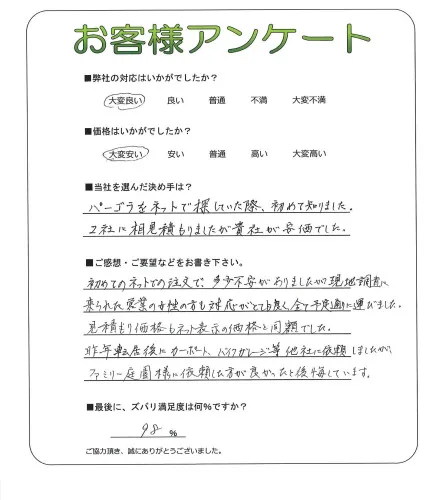 お客様アンケート
■弊社の対応はいかがでしたか?
大変良い 良い 普通 不満 大変不満
■価格はいかがでしたか?
大変安い 安い 普通 高い 大変高い
■当社を選んだ決め手は?
パーゴラをネットで探していた際、初めて知りました。
2社に相見積もりましたが貴社が安価でした。
■ご感想・ご要望などをお書き下さい。
初めてのネットでの注文で、多少不安がありましたが現地調査に
来られた営業の女性の方も対応がとても良く全て予定通に運びました。
見積もり価格もネット表示の価格と同額でした。
昨年転居後にカーポート、バイクガレージ等他社に依頼しましたが、
ファミリー庭園様に依頼した方が良かったと後悔しています。
■最後に、ズバリ満足度は何%ですか?
98 %
ご協力頂き、誠にありがとうございました。